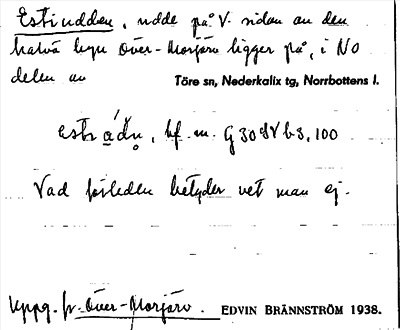 Estiudden, udde på V. sidan av den
halvö byn Över-Morjärv ligger på, i NO
delen av Töre sn, Nederkalix tg, Norrbottens l.
bf. m. G 30 b 3, 100
Vad förleden betyder vet man ej.
Uppg. fr. Över-Morjärv. EDVIN BRÄNNSTRÖM 1938.